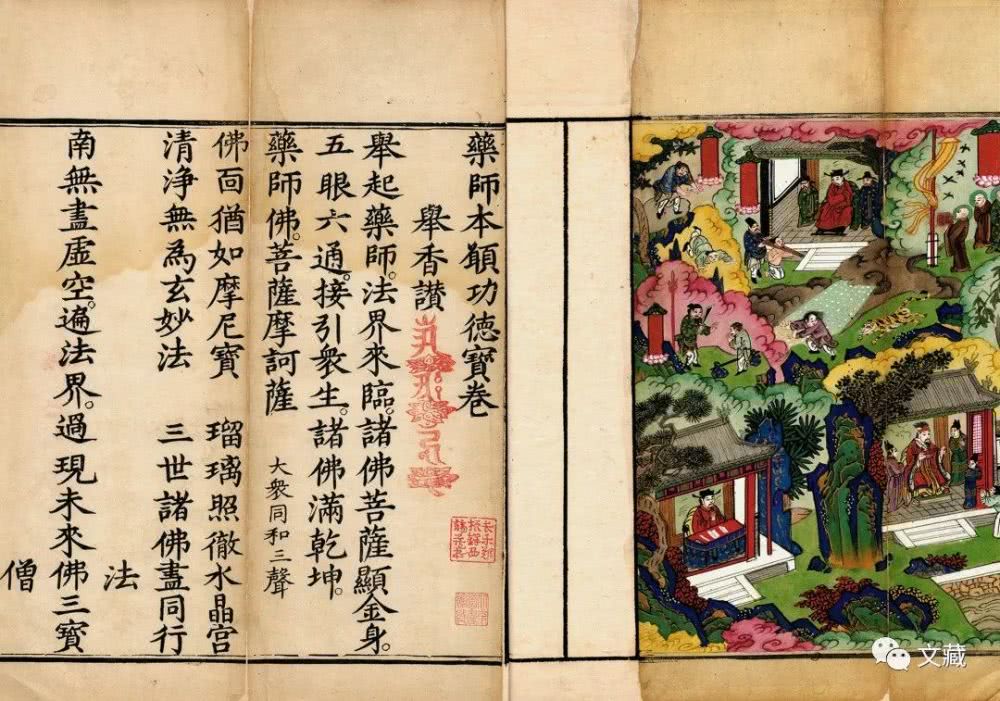 藥師本願功德寶卷
舉香讃
舉起藥師。法界來臨。諸佛菩薩顯金身。
五眼六通。接引衆生。諸佛滿乾坤。
藥師佛。菩薩摩訶薩 大衆同和三聲
佛面猶如摩尼寶 瑠璃照徹水晶宮
清淨無為玄妙法 三世諸佛盡同行
法
南無盡虛空。遍法界。過現未來佛三寶
僧
文藏